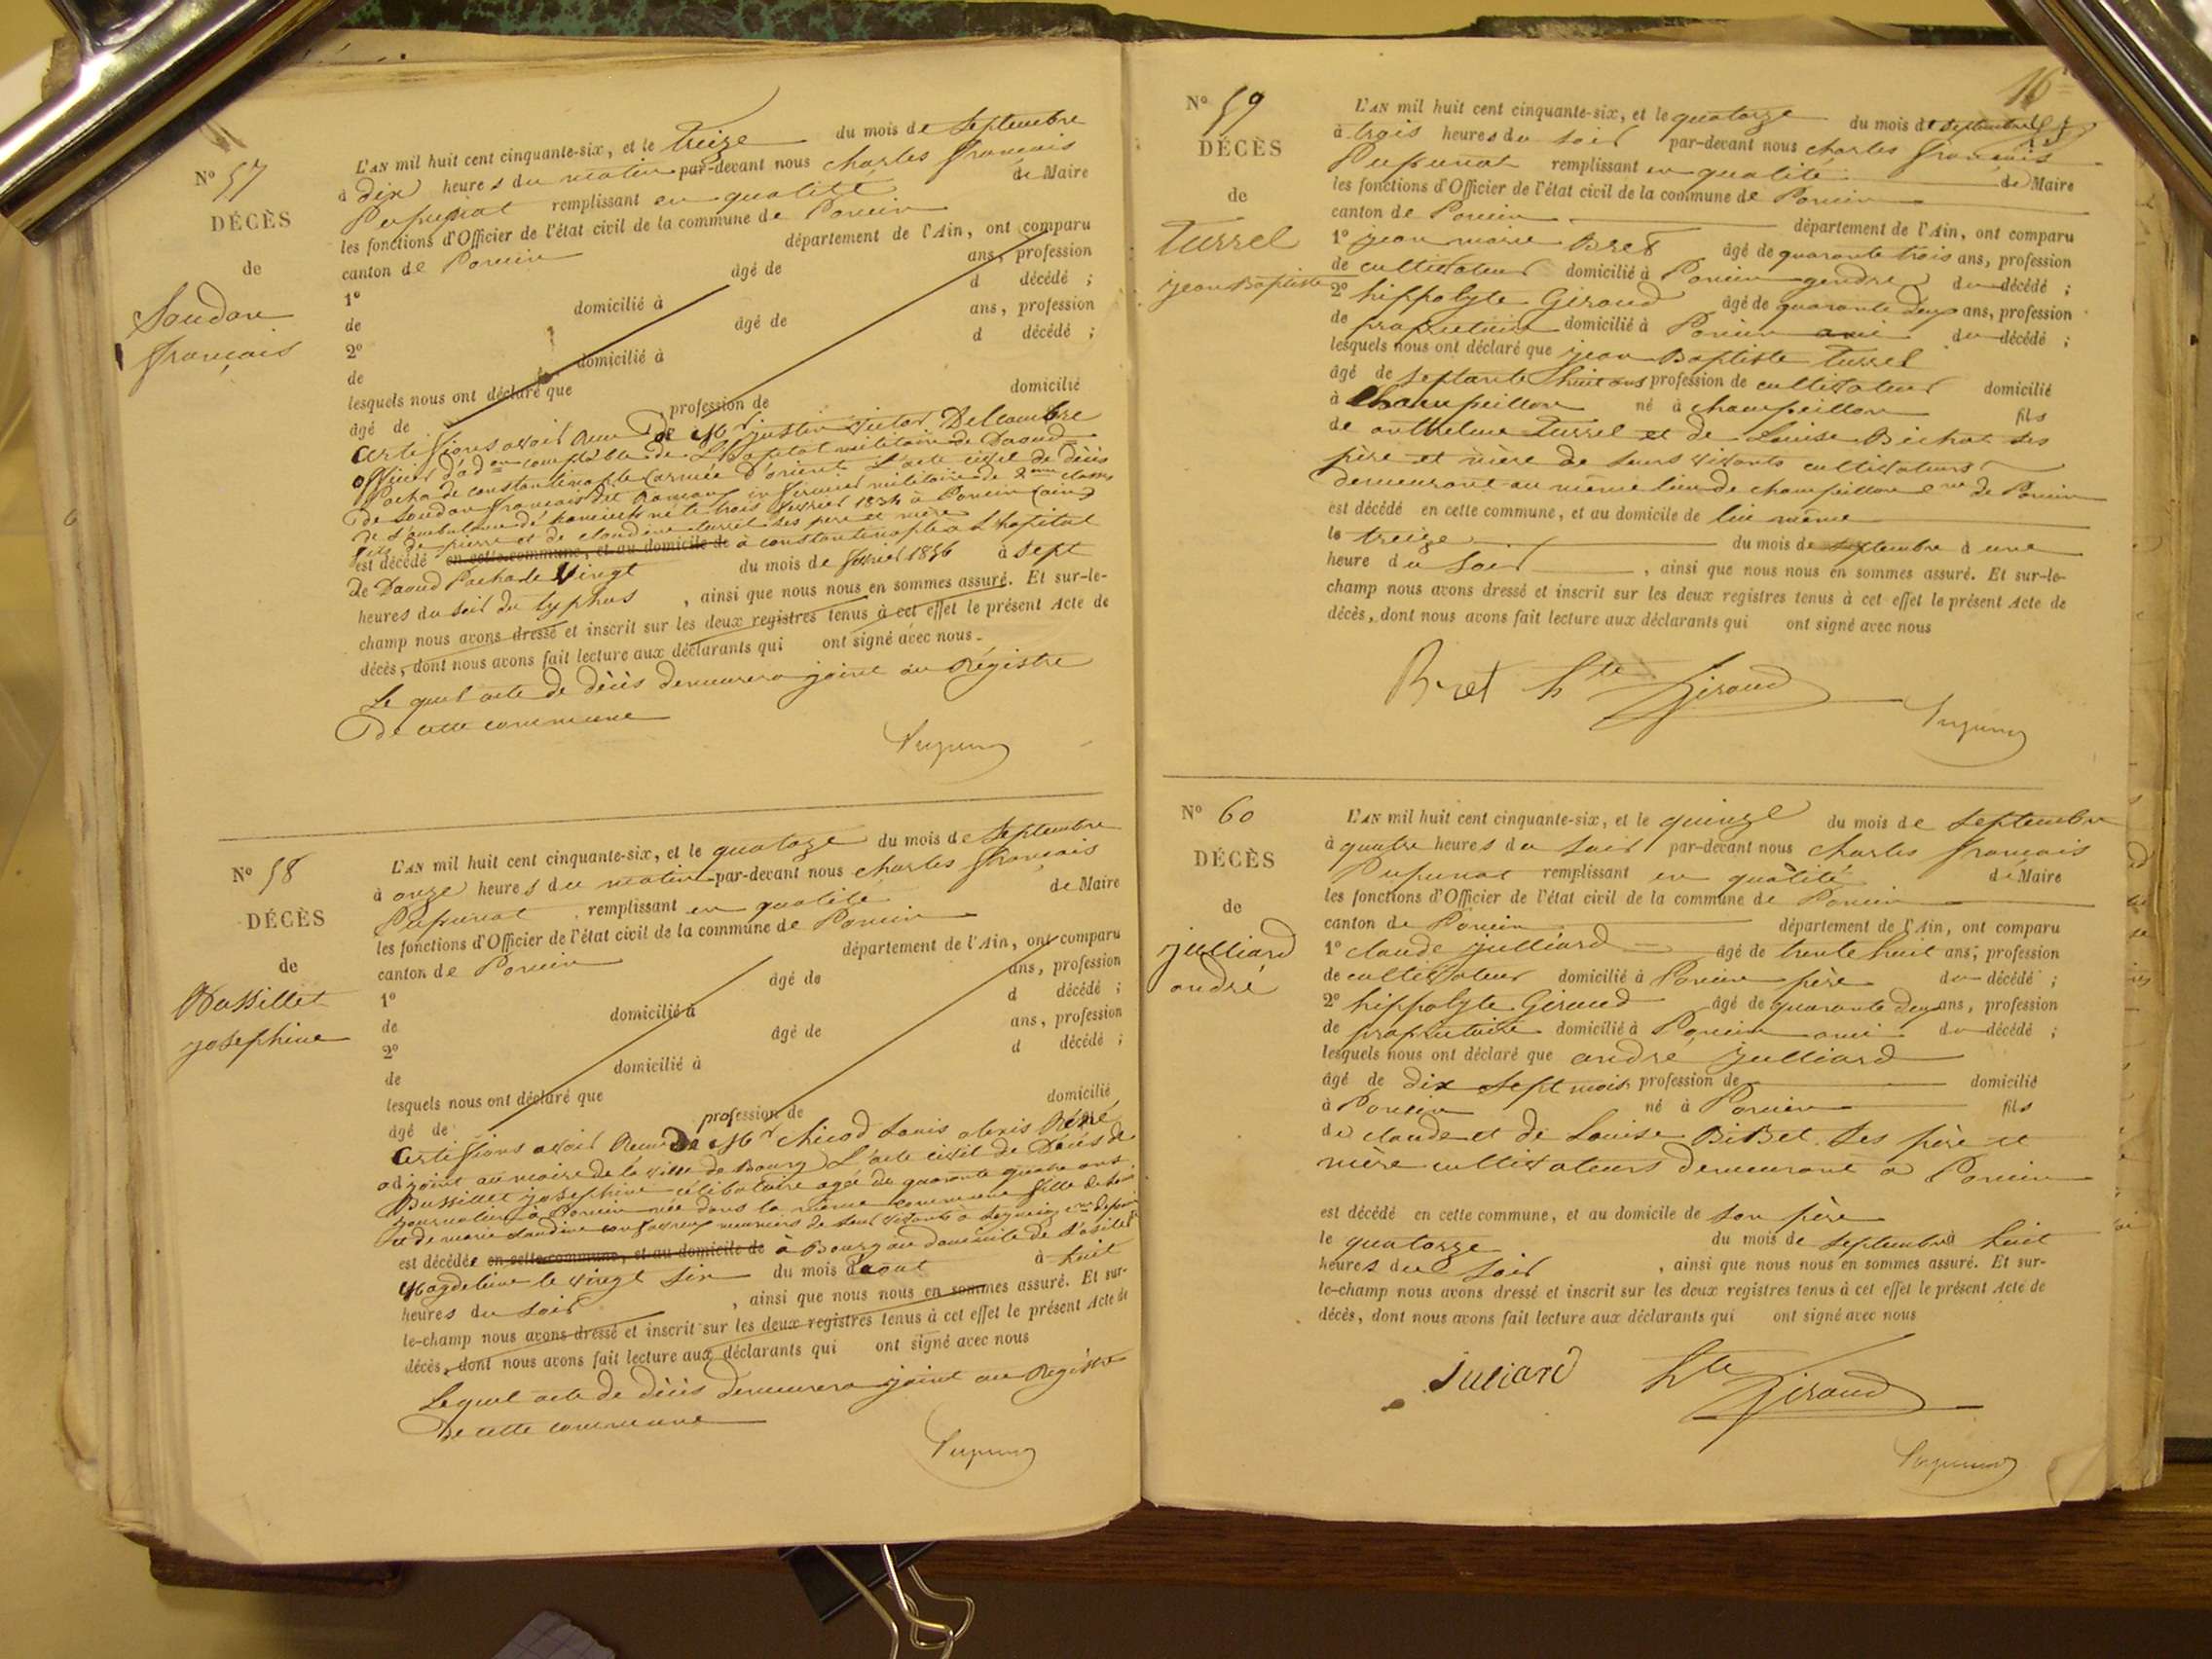 N° 57
DÉCÈS
de
Soudan
français
L'AN mil huit cent cinquante-six, et le treize du mois de Septembre
à dix heures du matin par-devant nous charles français
Pupunat remplissant en qualité de Maire
les fonctions d'Officier de l'état civil de la commune de Poncin
canton de Poncin département de l'Ain, ont comparu
1° âgé de ans, profession
de domicilié à d décédé ;
2° âgé de ans, profession
de domicilié à d décédé ;
lesquels nous ont déclaré que
âgé de profession de domicilié
Certifions avoir Reçu de Mr justin victor Delcambre
officier d'adon comptable de L'hopital militaire de Daoud
Pacha de constantinople (armée d'orient L'acte civil de décès
De Soudan français dit infirmier militaire de 2eme classe
de né le trois fevrier 1834 à Poncin (ain)
fils de pierre et de claudine turrel ses père et mère
est décédé en cette commune, et au domicile de à constantinople a L'hopital
de Daoud Pacha le Vingt du mois de fevrier 1856 à sept
heures du soir du typhus , ainsi que nous nous en sommes assuré. Et sur-le-
champ nous avons dressé et inscrit sur les deux registres tenus à cet effet le présent Acte de
décès, dont nous avons fait lecture aux déclarants qui ont signé avec nous.
Le quel acte de décès demeurera joint au Régistre
De cette commune
Pupunat
N° 58
DÉCÈS
de
Bussillet
josephine
L'AN mil huit cent cinquante-six, et le quatorze du mois de Septembre
à onze heures du matin par-devant nous charles français
Pupunat remplissant en qualité de Maire
les fonctions d'Officier de l'état civil de la commune de Poncin
canton de Poncin département de l'Ain, ont comparu
1° âgé de ans, profession
de domicilié à d décédé ;
2° âgé de ans, profession
de domicilié à d décédé ;
lesquels nous ont déclaré que
âgé de profession de domicilié
Certifions avoir Reçu De Mr chicod Louis alexis Réné
adjoint au maire de la ville de Bourg L'acte civil de Décès de
Bussillet josephine célibataire agée de quarante quatre ans
journalière à Poncin née dans la même commune fille de
et de marie
est décédée en cette commune, et au domicile de à Bourg au domicile de L'asile
Magdeleine le vingt six du mois d'aout à huit
heures du soir , ainsi que nous nous en sommes assuré. Et sur-
le-champ nous avons dressé et inscrit sur les deux registres tenus à cet effet le présent Acte de
décès, dont nous avons fait lecture aux déclarants qui ont signé avec nous
Lequel acte de décès demeurera joint au Régistre
De cette commune
Pupunat
16
N° 59
DÉCÈS
de
Turrel
jean Baptiste
L'AN mil huit cent cinquante-six, et le quatorze du mois de septembre
à trois heures du soir par-devant nous charles français
Pupunat remplissant en qualité de Maire
les fonctions d'Officier de l'état civil de la commune de Poncin
canton de Poncin département de l'Ain, ont comparu
1° jean marie Bret âgé de quarante trois ans, profession
de cultivateur domicilié à Poncin gendre du décédé ;
2° hippolyte Giraud âgé de quarante deux ans, profession
de proprietaire domicilié à Poncin ami du décédé ;
lesquels nous ont déclaré que jean Baptiste Turrel
âgé de septante huit ans profession de cultivateur domicilié
à Champeillon né à champeillon fils
de anthelme Turrel et de Louise Bichat ses
père et mère de leurs vivants cultivateurs
Demeurant au même lieu de champeillon cne de Poncin
est décédé en cette commune, et au domicile de lui même
le treize du mois de septembre à une
heure du soir , ainsi que nous nous en sommes assuré. Et sur-le-
champ nous avons dressé et inscrit sur les deux registres tenus à cet effet le présent Acte de
décès, dont nous avons fait lecture aux déclarants qui ont signé avec nous
Bret hte Giraud
Pupunat
N° 60
DÉCÈS
de
julliard
andré
L'AN mil huit cent cinquante-six, et le quinze du mois de Septembre
à quatre heures du soir par-devant nous charles français
Pupunat remplissant en qualité de Maire
les fonctions d'Officier de l'état civil de la commune de Poncin
canton de Poncin département de l'Ain, ont comparu
1° claude julliard âgé de trente huit ans, profession
de cultivateur domicilié à Poncin père du décédé ;
2° hippolyte Giraud âgé de quarante deux ans, profession
de proprietaire domicilié à Poncin ami du décédé ;
lesquels nous ont déclaré que andré julliard
âgé de dix sept mois profession de domicilié
à Poncin né à Poncin fils
de claude et de Louise BiBet ses père et
mère cultivateurs demeurant à Poncin
est décédé en cette commune, et au domicile de son père
le quatorze du mois de septembre à huit
heures du soir , ainsi que nous nous en sommes assuré. Et sur-
le-champ nous avons dressé et inscrit sur les deux registres tenus à cet effet le présent Acte de
décès, dont nous avons fait lecture aux déclarants qui ont signé avec nous
Juliard hte Giraud
Pupunat